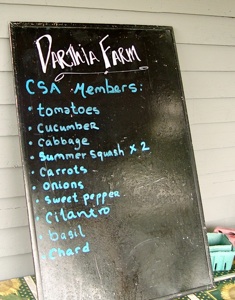 Darthia Farm
CSA Members:
• tomatoes
• cucumber
• cabbage
• summer squash x 2
• carrots
• onions
• sweet pepper
• Cilantro
• basil
• Chard